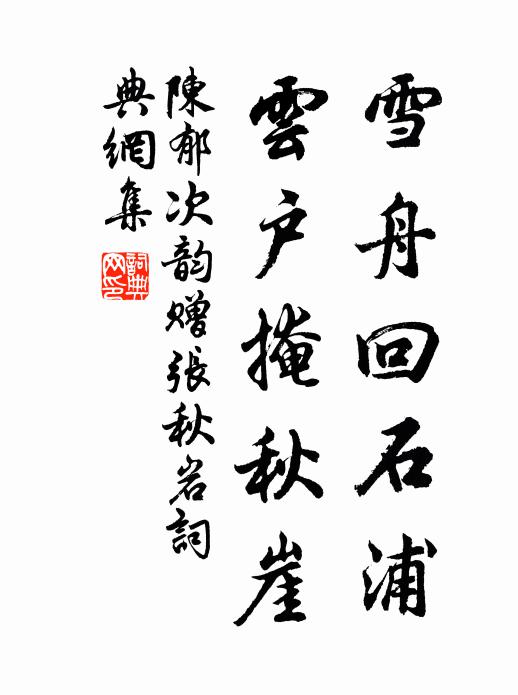 雪舟回石浦
雲户掩秋崖
陳郁次韵贈張秋岩詞
典網集
詞典
网印